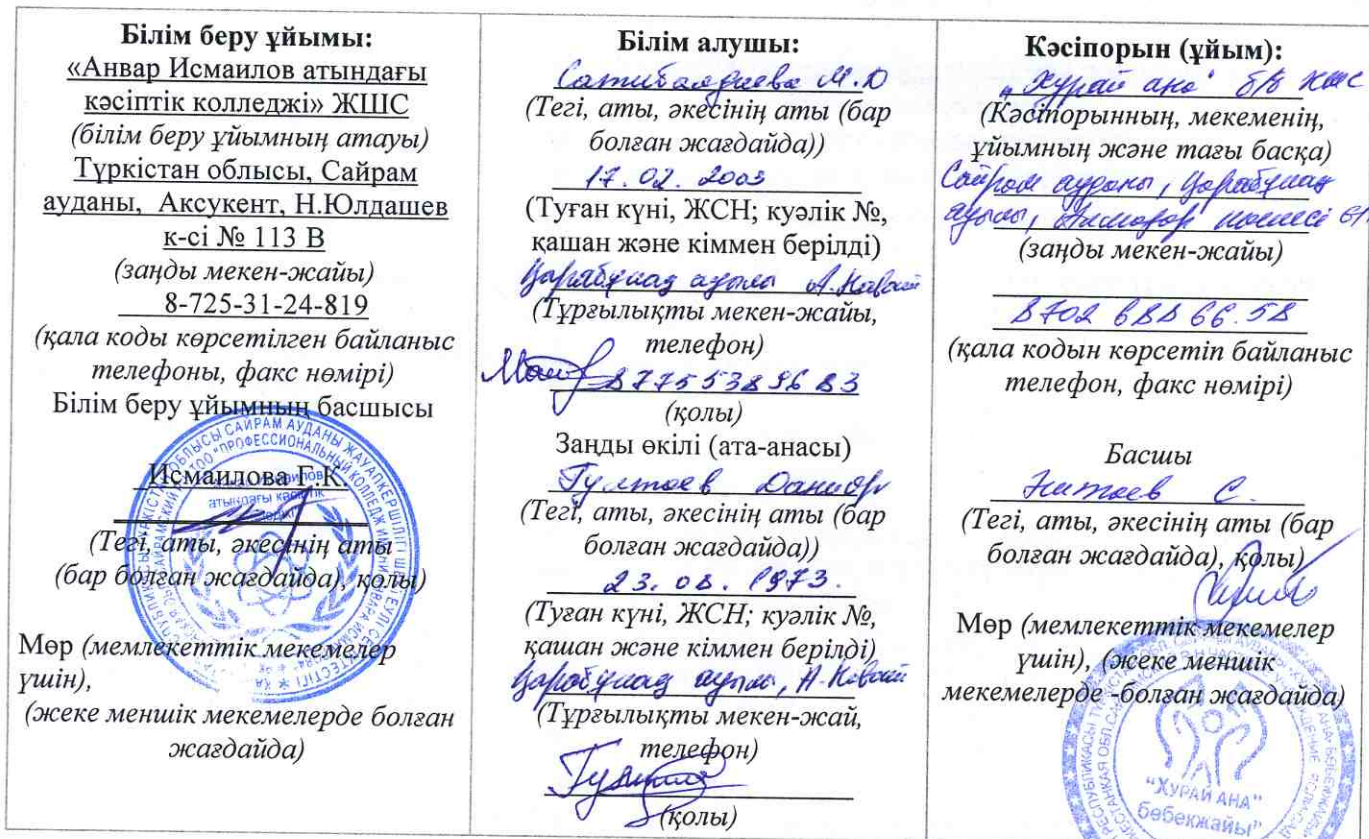 Білім беру ұйымы:
«Анвар Исмаилов атындағы
кәсіптік колледжі» ЖШС
(білім беру ұйымның атауы)
Түркістан облысы, Сайрам
ауданы, Аксукент, Н.Юлдашев
к-сі № 113 В
(заңды мекен-жайы)
8-725-31-24-819
(қала коды көрсетілген байланыс
телефоны, факс нөмірі)
Білім беру ұйымның басшысы
Исмаилова Г.К.
(Тегі, аты, әкесінің аты
(бар болған жағдайда), қолы)
Мөр (мемлекеттік мекемелер
үшін),
(жеке меншік мекемелерде болған
жағдайда)
Білім алушы:
Сатибалдиева М.Д
(Тегі, аты, әкесінің аты (бар
болған жағдайда))
17.02.2003
(Туған күні, ЖСН; куәлік №,
қашан және кіммен берілді)
Қарабұлақ ауылы А.Навои
(Тұрғылықты мекен-жайы,
телефон)
87755389683
(қолы)
Заңды өкілі (ата-анасы)
Гултаев Данияр
(Тегі, аты, әкесінің аты (бар
болған жағдайда))
23.08.1973.
(Туған күні, ЖСН; куәлік №,
қашан және кіммен берілді)
Қарабұлақ ауылы, Н-Навои
(Тұрғылықты мекен-жай,
телефон)
(қолы)
Кәсіпорын (ұйым):
"Хурай ана" б/б ЖШС
(Кәсіпорынның, мекеменің,
ұйымның және тағы басқа)
Сайрам ауданы, Қарабұлақ
ауылы, көшесі
(заңды мекен-жайы)
8702 688 66.58
(қала кодын көрсетіп байланыс
телефон, факс нөмірі)
Басшы
С.
(Тегі, аты, әкесінің аты (бар
болған жағдайда), қолы)
Мөр (мемлекеттік мекемелер
үшін), (жеке меншік
мекемелерде -болған жағдайда)
"ХУРАЙ АНА"
бөбекжайы"